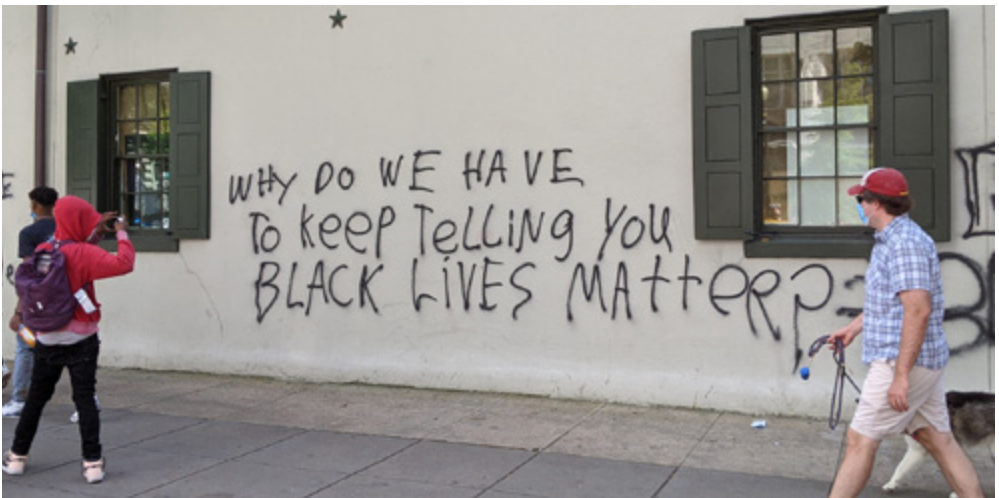 WHY DO WE HAVE
To keep TELLiNg YOU
BLACK LiVES MAtteR?